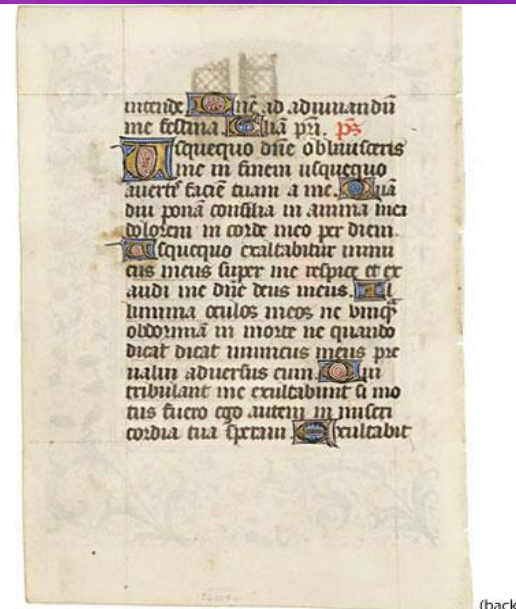 intende Dñe ad adiuuandũ
me festina. Glia pri. ps
Vsquequo dñe obliuisceris
me in finem usquequo
auertis faciẽ tuam a me. Quã
diu ponã consilia in anima mea
dolorem in corde meo per diem.
Vsquequo exaltabitur inimi
cus meus super me respice et ex
audi me dñe deus meus. Il
lumina oculos meos ne vmqȝ
obdormiã in morte ne quando
dicat dicat inimicus meus pre
ualui aduersus eum. Qui
tribulant me exultabunt si mo
tus fuero ego autem in miseri
cordia tua speraui. Exultabit
(back